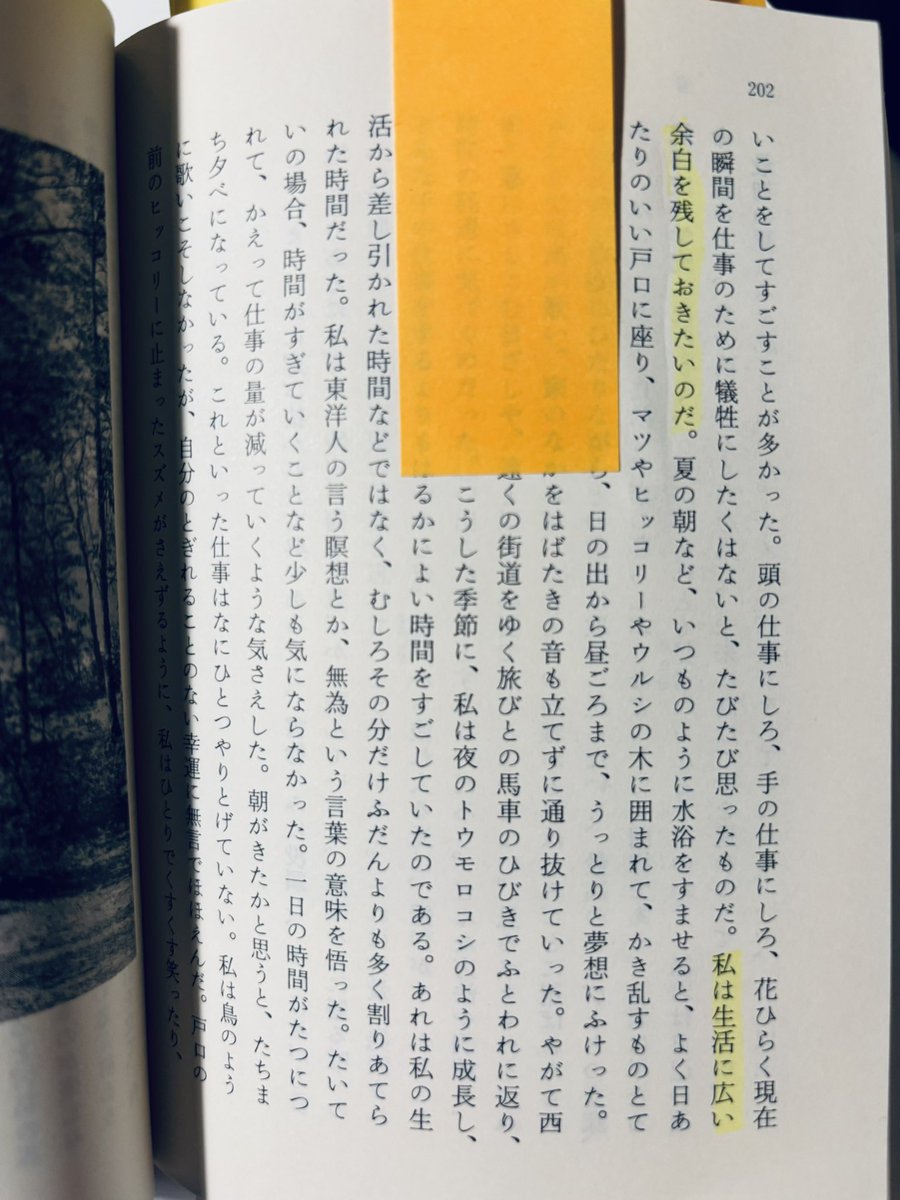 202
いことをしてすごすことが多かった。頭の仕事にしろ、手の仕事にしろ、花ひらく現在
の瞬間を仕事のために犠牲にしたくはないと、たびたび思ったものだ。私は生活に広い
余白を残しておきたいのだ。夏の朝など、いつものように水浴をすませると、よく日あ
たりのいい戸口に座り、マツやヒッコリーやウルシの木に囲まれて、かき乱すものとて
ら、日の出から昼ごろまで、うっとりと夢想にふけった。
をはばたきの音も立てずに通り抜けていった。やがて西
遠くの街道をゆく旅びとの馬車のひびきでふとわれに返り、
こうした季節に、私は夜のトウモロコシのように成長し、
はるかによい時間をすごしていたのである。あれは私の生
活から差し引かれた時間などではなく、むしろその分だけふだんよりも多く割りあてら
れた時間だった。私は東洋人の言う瞑想とか、無為という言葉の意味を悟った。たいて
いの場合、時間がすぎていくことなど少しも気にならなかった。一日の時間がたつにつ
れて、かえって仕事の量が減っていくような気さえした。朝がきたかと思うと、たちま
ち夕べになっている。これといった仕事はなにひとつやりとげていない。私は鳥のよう
に歌いこそしなかったが、自分のとぎれることのない幸運に無言でほほえんだ。戸口の
前のヒッコリーに止まったスズメがさえずるように、私はひとりでくすくす笑ったり、